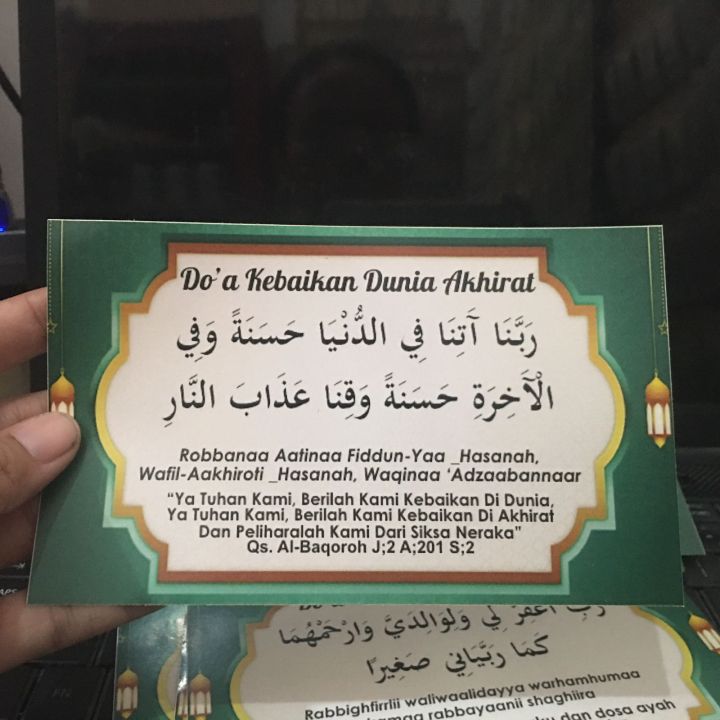 Do'a Kebaikan Dunia Akhirat
رَبَّنَا آتِنَا فِي الدُّنْيَا حَسَنَةً وَفِي
الْآخِرَةِ حَسَنَةً وَقِنَا عَذَابَ النَّارِ
Robbanaa Aatinaa Fiddun-Yaa _Hasanah,
Wafil-Aakhiroti _Hasanah, Waqinaa 'Adzaabannaar
"Ya Tuhan Kami, Berilah Kami Kebaikan Di Dunia,
Ya Tuhan Kami, Berilah Kami Kebaikan Di Akhirat
Dan Peliharalah Kami Dari Siksa Neraka"
Qs. Al-Baqoroh J;2 A;201 S;2
لِي وَلِوَالِدَيَّ وَارْحَمْهُمَا
كَمَا رَبَّيَانِي صَغِيرًا
Rabbighfirrlii waliwaalidayya warhamhumaa
rabbayaanii shaghiira
dan dosa ayah